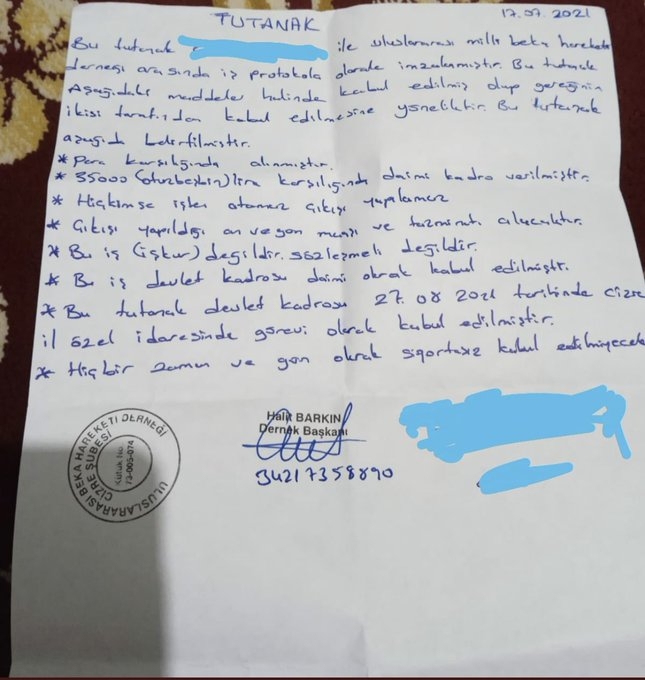 TUTANAK
17.07.2021
Bu tutanak ile uluslararası milli beka hareketi
derneği arasında iş protokolü olarak imzalamıştır. Bu tutanak
Aşağıdaki maddeler halinde kabul edilmiş olup gereğinin
ikisi tarafından kabul edilmesine yöneliktir. Bu tutanak
aşağıd belirtilmiştir.
* Para karşılığında alınmıştır.
* 35000 (otuzbeşbin) lira karşılığında daimi kadro verilmiştir.
* Hiçkimse işten atamaz çıkışı yapılamaz
* Çıkışı yapıldığı an ve gün maaşı ve tazminatı alucaktır.
* Bu iş (işkur) değildir. sözleşmeli değildir.
* Bu iş devlet kadrosu daimi olarak kabul edilmiştir.
* Bu tutanak devlet kadrosu 27.08 2021 tarihinde Cizre
il özel idaresinde görevi olarak kabul edilmiştir.
* Hiçbir zaman ve gün olarak sigortasız kabul edilmiyecek
ULUSLARARASI BEKA HAREKETİ DERNEĞİ
CİZRE ŞUBESİ
Kütük No
73-005-074
Halit BARKIN
Dernek Başkanı
34217358890